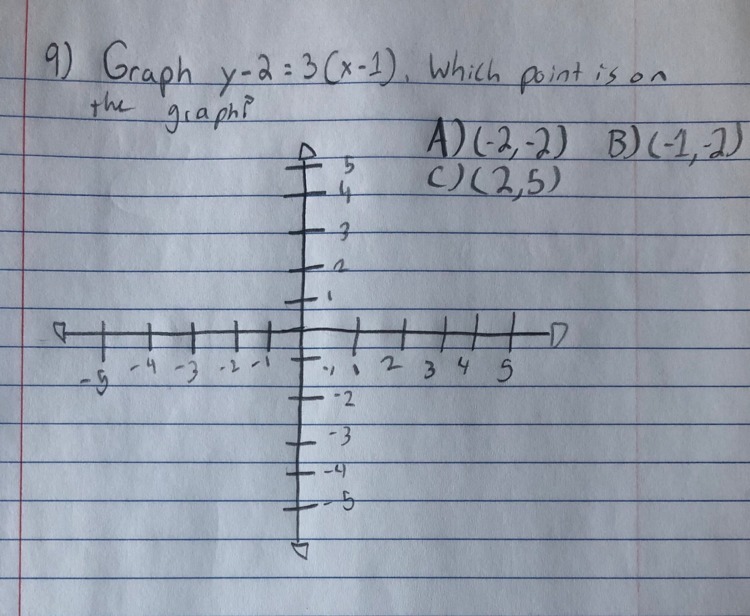 9) Graph y-2=3(x-1). Which point is on
the graph?
A) (-2,-2) B) (-1,-2)
C) (2,5)
5
4
3
2
1
-5 -4 -3 -2 -1 -1 1 2 3 4 5
-2
-3
-4
-5